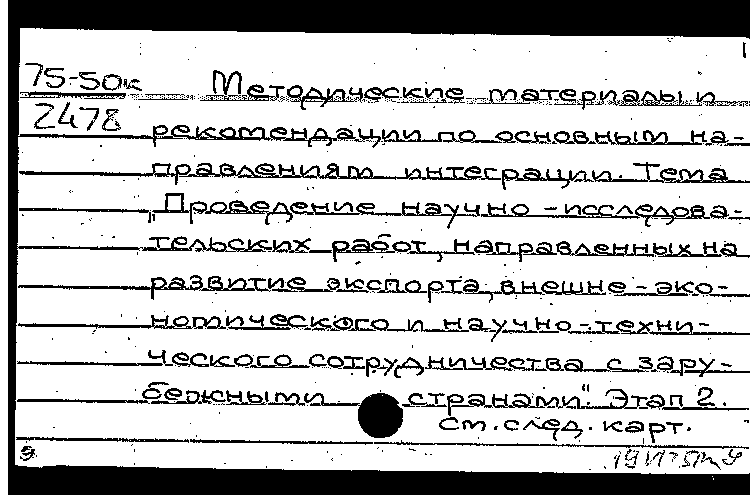 75-50к Методические материалы и
2478 рекомендации по основным на-
правлениям интеграции. Тема
„Проведение научно-исследова-
тельских работ, направленных на
развитие экспорта, внешне-эко-
номического и научно-техни-
ческого сотрудничества с зару-
бежными странами". Этап 2.
см. след. карт.